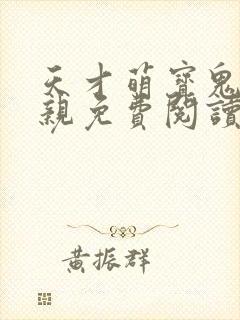 天才萌寶鬼
親免費閱讀
黃振群